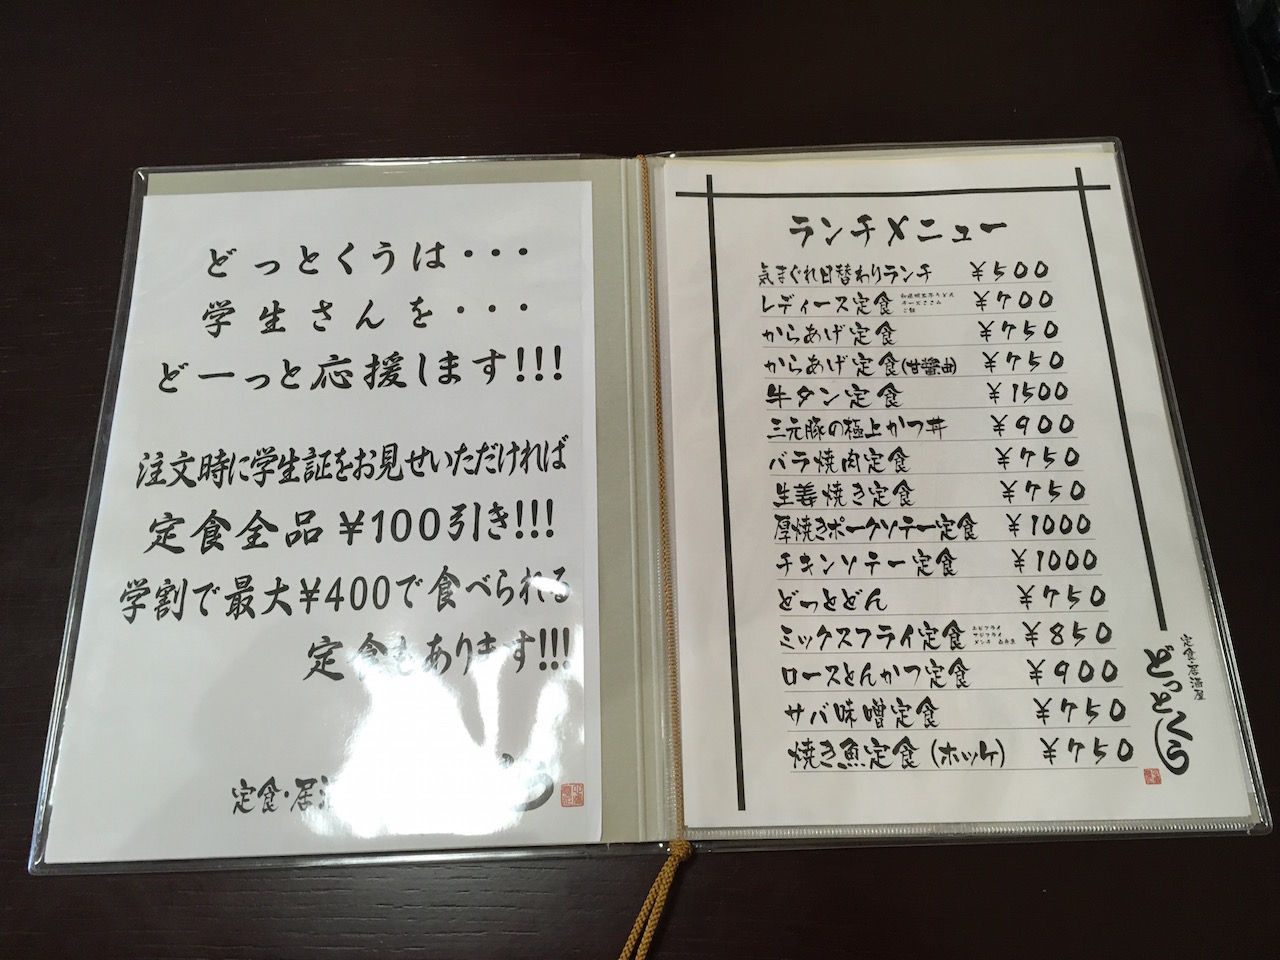 どっとくうは・・・
学生さんを・・・
どーっと応援します!!!
注文時に学生証をお見せいただければ
定食全品￥100引き!!!
学割で最大￥400で食べられる
定食もあります!!!
定食・居酒
ランチメニュー
気まぐれ日替わりランチ ￥500
レディース定食 ￥700
からあげ定食 ￥750
からあげ定食(甘醤油) ￥750
牛タン定食 ￥1500
三元豚の極上かつ丼 ￥900
バラ焼肉定食 ￥750
生姜焼き定食 ￥750
厚焼きポークソテー定食 ￥1000
チキンソテー定食 ￥1000
どっとどん ￥750
ミックスフライ定食 エビフライ アジフライ メンチ ￥850
ロースとんかつ定食 ￥900
サバ味噌定食 ￥750
焼き魚定食(ホッケ) ￥750
定食・居酒屋
どっとくう